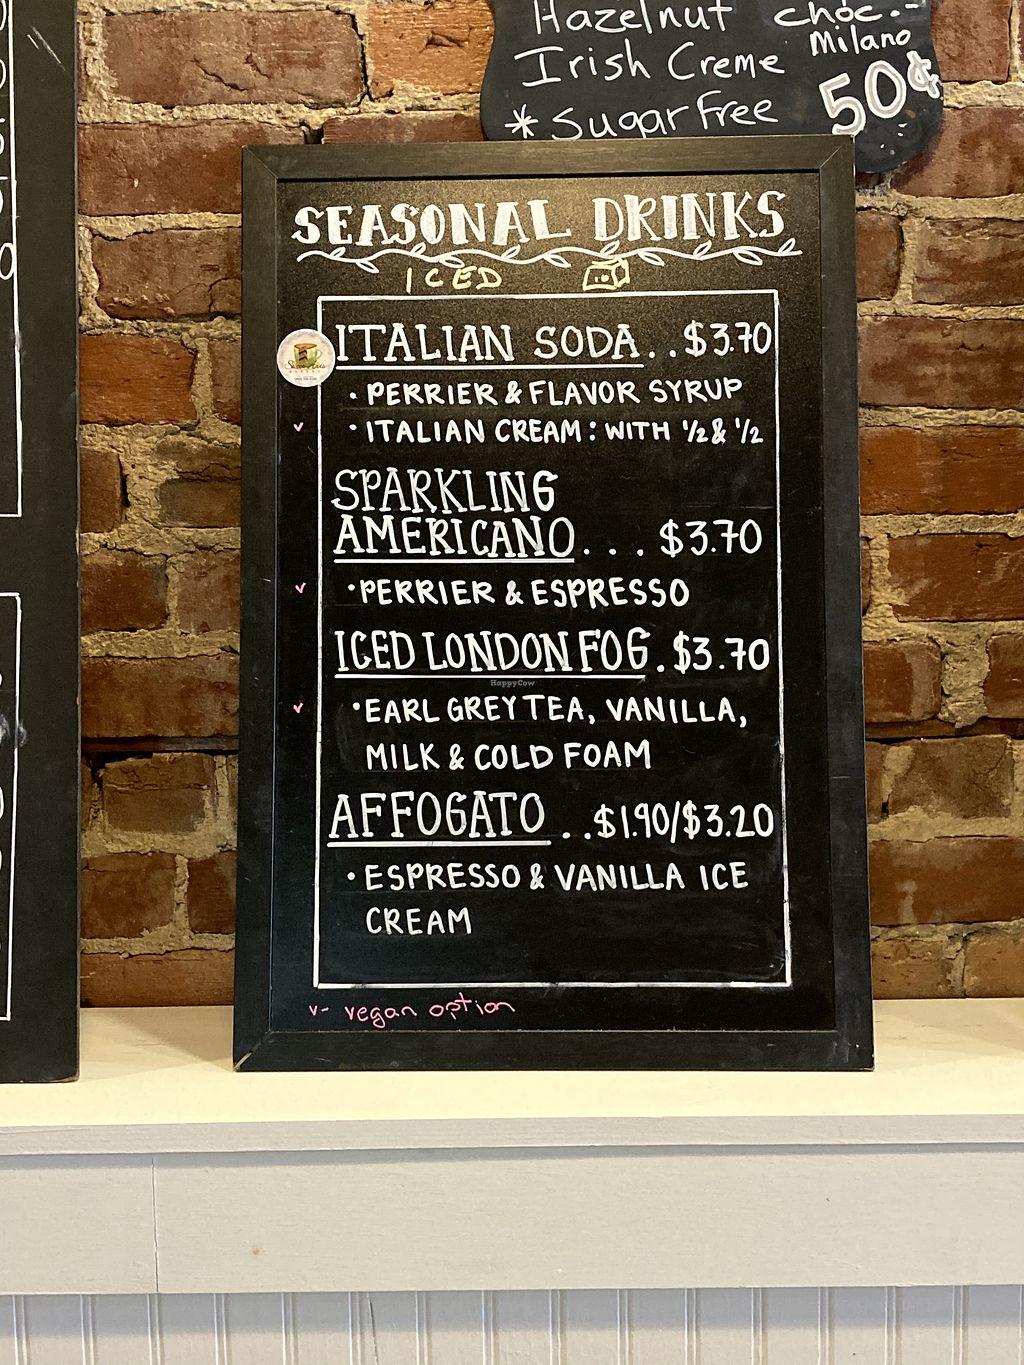 Hazelnut choc.-
Irish Creme Milano
* Sugar Free 50¢
SEASONAL DRINKS
ICED
ITALIAN SODA..$3.70
• PERRIER & FLAVOR SYRUP
v • ITALIAN CREAM: WITH 1/2 & 1/2
SPARKLING
AMERICANO... $3.70
v • PERRIER & ESPRESSO
ICED LONDON FOG.$3.70
HappyCow
v • EARL GREY TEA, VANILLA,
MILK & COLD FOAM
AFFOGATO ..$1.90/$3.20
• ESPRESSO & VANILLA ICE
CREAM
v- vegan option